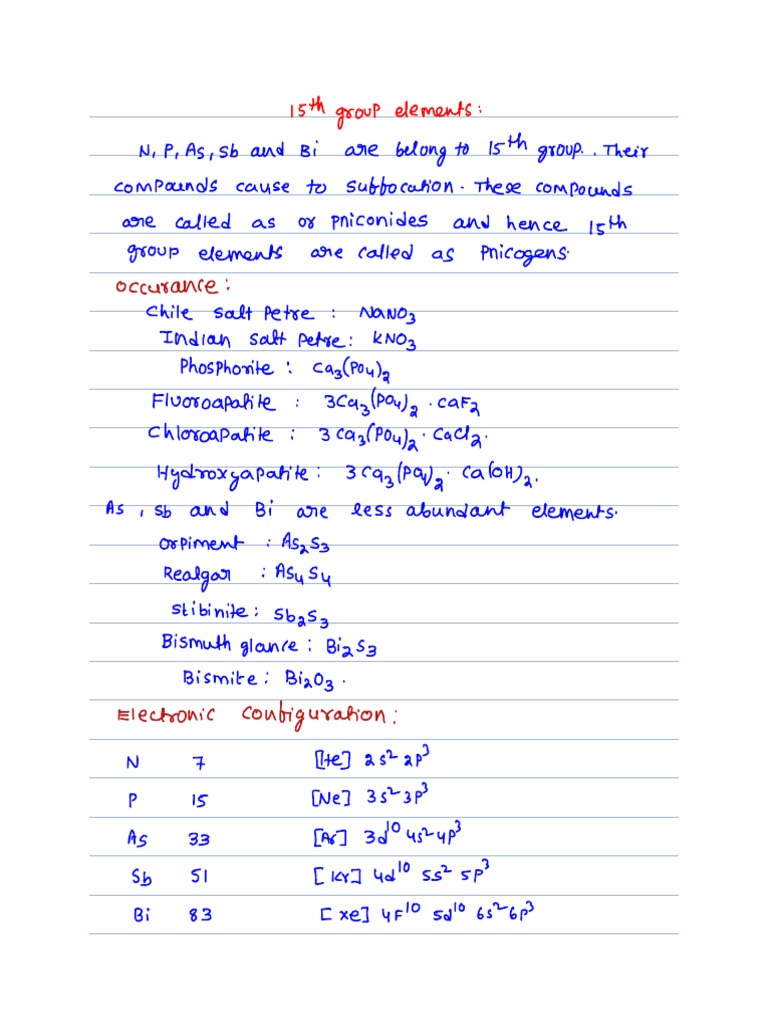 15th group elements:
N, P, As, Sb and Bi are belong to 15th group. Their
compounds cause to suffocation. These compounds
are called as or pniconides and hence 15th
group elements are called as pnicogens.
Occurance:
Chile salt petre : NaNO3
Indian salt petre: KNO3
Phosphorite : Ca3(PO4)2
Fluoroapatite : 3Ca3(PO4)2 . CaF2
Chloroapatite : 3 Ca3(PO4)2 . CaCl2.
Hydroxyapatite : 3 Ca3(PO4)2 . Ca(OH)2.
As, Sb and Bi are less abundant elements.
Orpiment : As2S3
Realgar : As4S4
Stibinite : Sb2S3
Bismuth glance : Bi2S3
Bismite : Bi2O3.
Electronic configuration:
N 7 [He] 2s2 2p3
P 15 [Ne] 3s2 3p3
As 33 [Ar] 3d10 4s2 4p3
Sb 51 [Kr] 4d10 5s2 5p3
Bi 83 [Xe] 4F10 5d10 6s2 6p3